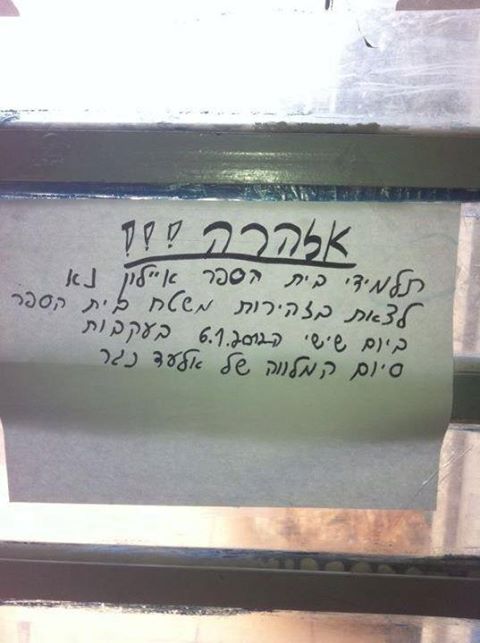 אזהרה !!!
תלמידי בית הספר איילון נא
לצאת בזהירות משטח בית הספר
ביום שישי ה 6.1.2012 בעקבות
סיום המלווה של אלעד נגר